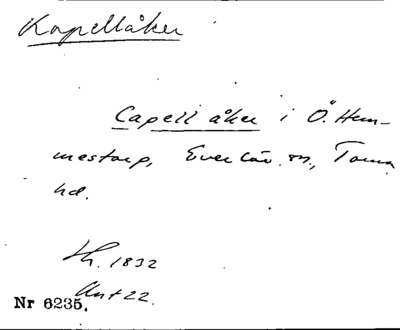 Kapellåker
Capell åker i Ö. Hem-
mestorp, Everlöv sn., Torna
hd.
Lh. 1832
Ant 22.
Nr 6235.